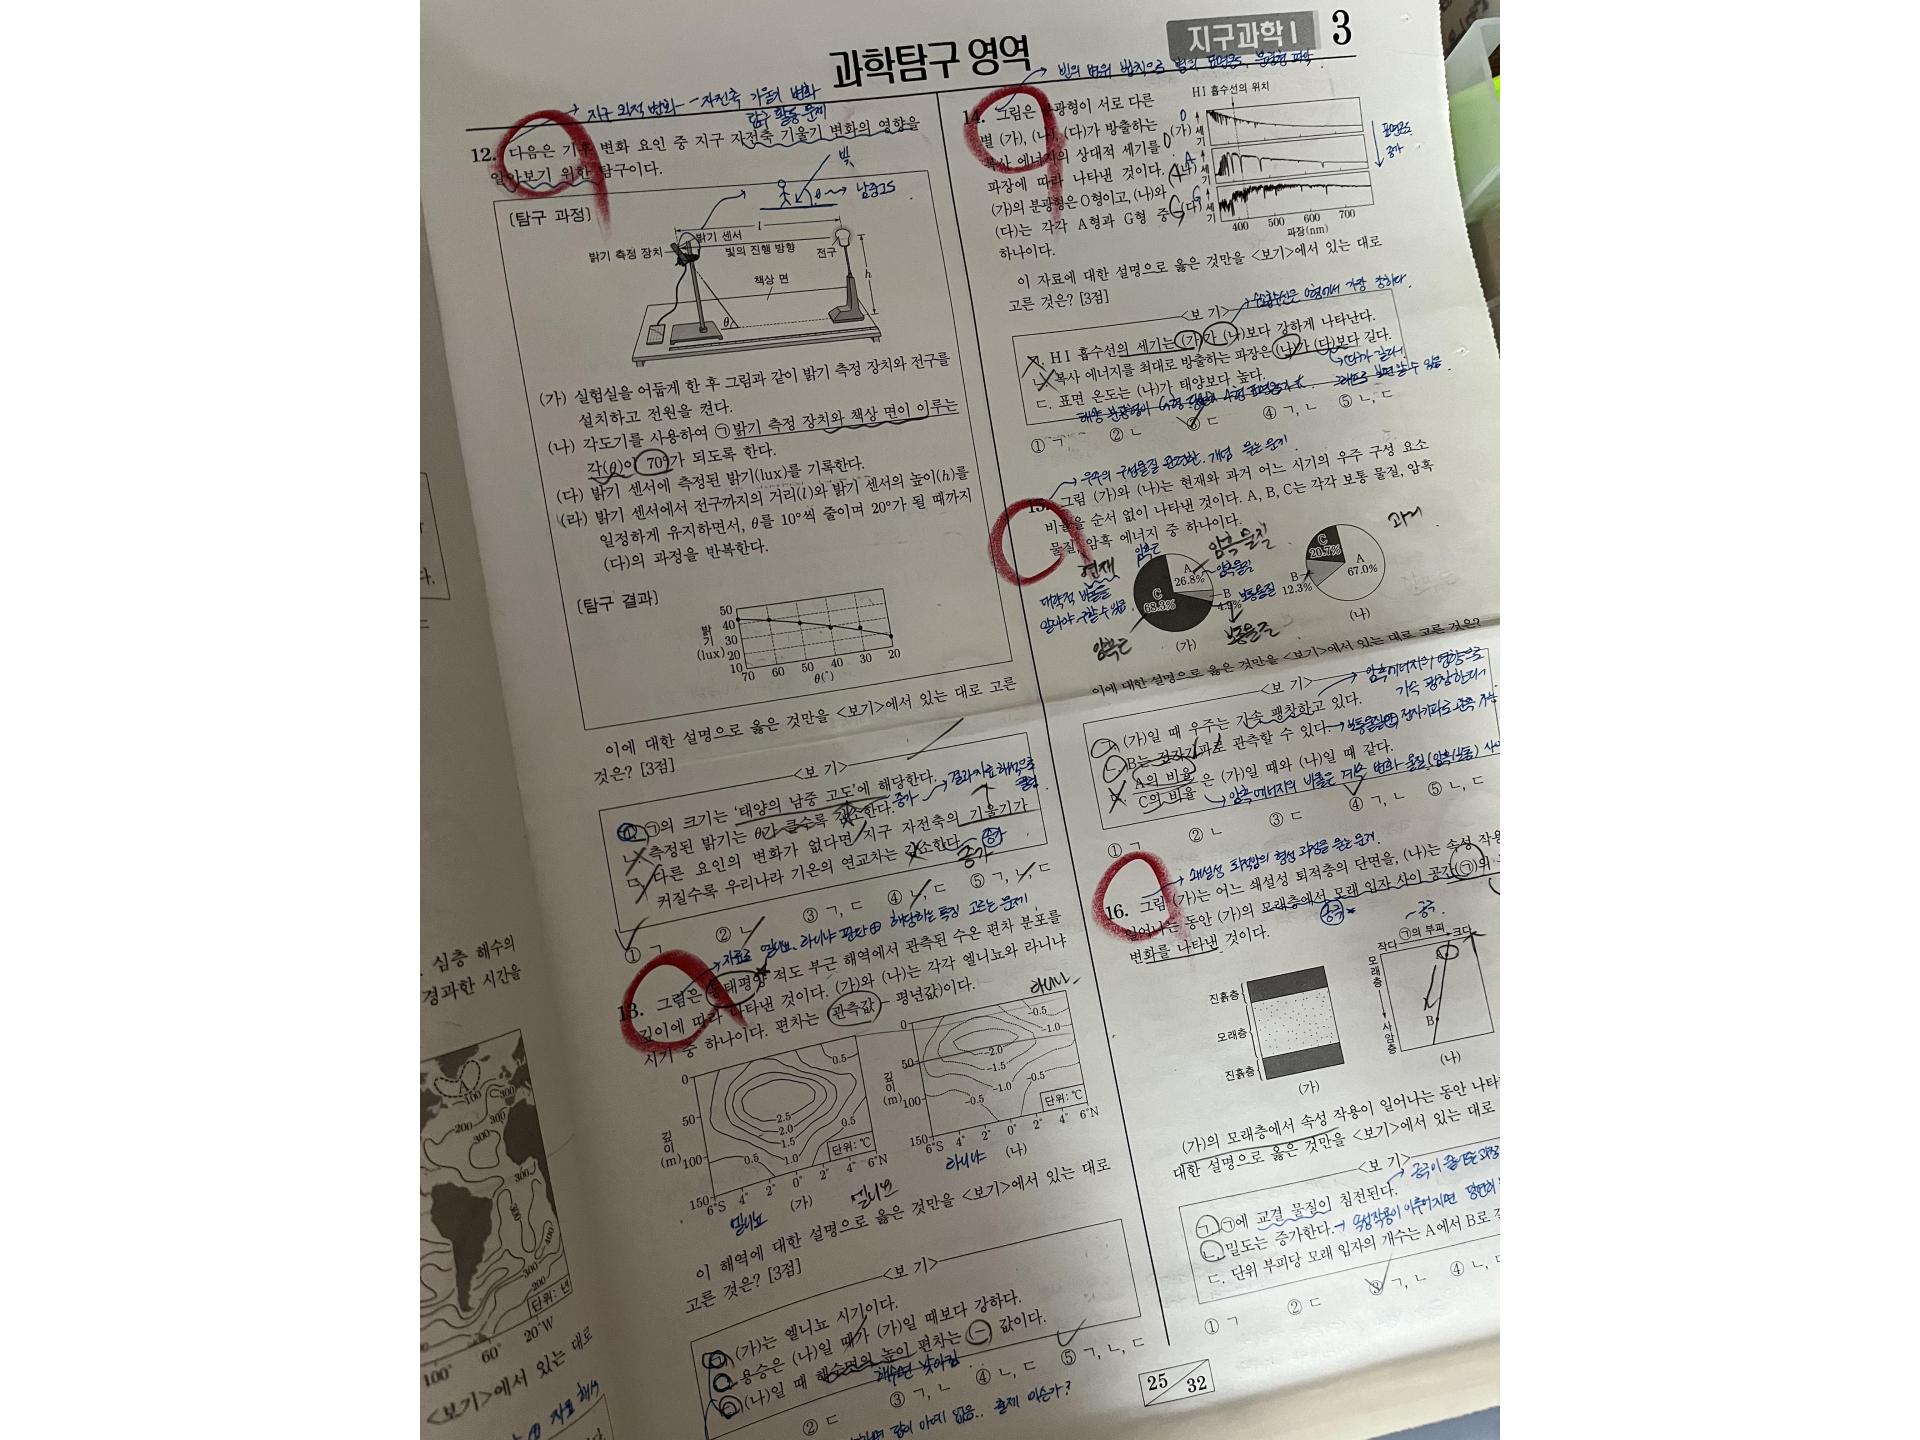 과학탐구 영역
지구과학 I
3
지구 외적 변화 - 자전축 기울기 변화
탐구 활동 문제
12. 다음은 기후 변화 요인 중 지구 자전축 기울기 변화의 영향을
알아보기 위한 탐구이다.
빛
남중고도
[탐구 과정]
l
밝기 센서
밝기 측정 장치
빛의 진행 방향
전구
책상 면
h
θ
(가) 실험실을 어둡게 한 후 그림과 같이 밝기 측정 장치와 전구를
설치하고 전원을 켠다.
(나) 각도기를 사용하여 ㉠밝기 측정 장치와 책상 면이 이루는
각(θ)이 70°가 되도록 한다.
(다) 밝기 센서에 측정된 밝기(lux)를 기록한다.
(라) 밝기 센서에서 전구까지의 거리(l)와 밝기 센서의 높이(h)를
일정하게 유지하면서, θ를 10°씩 줄이며 20°가 될 때까지
(다)의 과정을 반복한다.
[탐구 결과]
밝기(lux)
50
40
30
20
10
70 60 50 40 30 20
θ(°)
이에 대한 설명으로 옳은 것만을 <보기>에서 있는 대로 고른
것은? [3점]
<보 기>
ㄱ. ㉠의 크기는 '태양의 남중 고도'에 해당한다.
ㄴ. 측정된 밝기는 θ가 클수록 감소한다. 증가
ㄷ. 다른 요인의 변화가 없다면 지구 자전축의 기울기가
커질수록 우리나라 기온의 연교차는 감소한다. 증가
① ㄱ ② ㄴ ③ ㄱ, ㄷ ④ ㄴ, ㄷ ⑤ ㄱ, ㄴ, ㄷ
자료로 엘니뇨, 라니냐 판단 ⊕ 해당하는 특징 고르는 문제
13. 그림은 동태평양 적도 부근 해역에서 관측된 수온 편차 분포를
깊이에 따라 나타낸 것이다. (가)와 (나)는 각각 엘니뇨와 라니냐
시기 중 하나이다. 편차는 (관측값 - 평년값)이다.
라니냐
깊이(m)
0
50
100
150
0.5
2.5
2.0
1.5
1.0
0.5
0.5
단위: ℃
6°S 4° 2° 0° 2° 4° 6°N
(가)
엘니뇨
엘니뇨
깊이(m)
0
50
100
150
-0.5
-1.0
-2.0
-1.5
-1.0
-0.5
-0.5
단위: ℃
6°S 4° 2° 0° 2° 4° 6°N
라니냐
(나)
이 해역에 대한 설명으로 옳은 것만을 <보기>에서 있는 대로
고른 것은? [3점]
<보 기>
ㄱ. (가)는 엘니뇨 시기이다.
ㄴ. 용승은 (나)일 때가 (가)일 때보다 강하다.
ㄷ. (나)일 때 해수면의 높이 편차는 (-) 값이다.
해수면 낮아짐
② ㄷ ③ ㄱ, ㄴ ④ ㄴ, ㄷ ⑤ ㄱ, ㄴ, ㄷ
답이 아예 없음.. 출제 미스인가?
14. 그림은 분광형이 서로 다른
별 (가), (나), (다)가 방출하는
복사 에너지의 상대적 세기를
파장에 따라 나타낸 것이다.
(가)의 분광형은 O형이고, (나)와
(다)는 각각 A형과 G형 중
하나이다.
HI 흡수선의 위치
(가)
(나)
(다)
세기
세기
세기
O
A
G
표면온도
증가
400 500 600 700
파장(nm)
이 자료에 대한 설명으로 옳은 것만을 <보기>에서 있는 대로
고른 것은? [3점]
<보 기>
ㄱ. HI 흡수선의 세기는 (가)가 (나)보다 강하게 나타난다.
ㄴ. 복사 에너지를 최대로 방출하는 파장은 (나)가 (다)보다 길다.
ㄷ. 표면 온도는 (나)가 태양보다 높다.
① ㄱ ② ㄴ ③ ㄷ ④ ㄱ, ㄴ ⑤ ㄴ, ㄷ
15. 그림 (가)와 (나)는 현재와 과거 어느 시기의 우주 구성 요소
비율을 순서 없이 나타낸 것이다. A, B, C는 각각 보통 물질, 암흑
물질, 암흑 에너지 중 하나이다.
현재
암흑물질
암흑물질
보통물질
보통물질
A
26.8%
B
4.9%
C
68.3%
(가)
과거
C
20.7%
A
67.0%
B
12.3%
(나)
이에 대한 설명으로 옳은 것만을 <보기>에서 있는 대로 고른 것은?
<보 기>
암흑에너지의 영향으로
가속 팽창한다
ㄱ. (가)일 때 우주는 가속 팽창하고 있다.
ㄴ. B는 전자기파로 관측할 수 있다.
ㄷ. A의 비율/C의 비율 은 (가)일 때와 (나)일 때 같다.
① ㄱ ② ㄴ ③ ㄷ ④ ㄱ, ㄴ ⑤ ㄴ, ㄷ
쇄설성 퇴적암의 형성 과정을 묻는 문제.
16. 그림 (가)는 어느 쇄설성 퇴적층의 단면을, (나)는 속성 작용
일어나는 동안 (가)의 모래층에서 모래 입자 사이 공간(㉠)의
변화를 나타낸 것이다.
공극
진흙층
모래층
진흙층
(가)
공극.
㉠의 부피
작다 크다
모래층
사암층
B
(나)
(가)의 모래층에서 속성 작용이 일어나는 동안 나타
대한 설명으로 옳은 것만을 <보기>에서 있는 대로
<보 기>
ㄱ. ㉠에 교결 물질이 침전된다.
ㄴ. 밀도는 증가한다.
ㄷ. 단위 부피당 모래 입자의 개수는 A에서 B로 갈
① ㄱ ② ㄷ ③ ㄱ, ㄴ ④ ㄴ, ㄷ
25
32
심층 해수의
경과한 시간을
100
300
200
300
300
300
300
400
300
200
단위: 년
20°W
60°
100°
<보기>에서 있는 대로